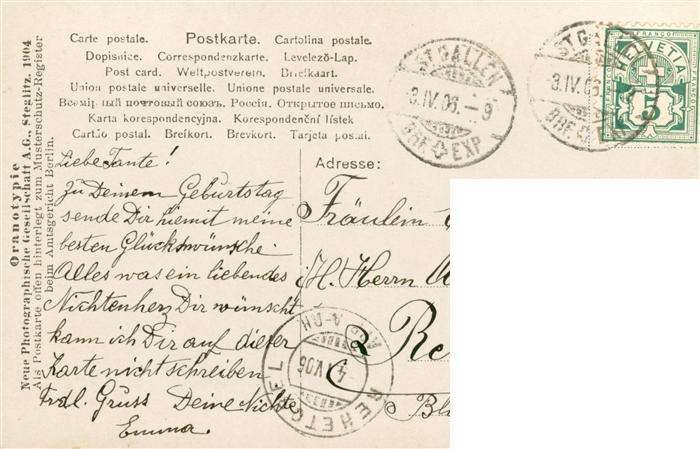 Carte postale. Postkarte. Cartolina postale.
Dopisnice. Correspondenzkarte. Levelező-Lap.
Post card. Weltpostverein. Briefkaart.
Union postale universelle. Unione postale universale.
Всемірный почтовый союзъ. Россія. Открытое письмо.
Karta korespondencyjna. Korespondenční lístek
Cartão postal. Brefkort. Brevkort. Tarjeta postal.
Oranotypie
Neue Photographische Gesellschaft A.G., Steglitz. 1904
Als Postkarte offen hinterlegt zum Musterschutz-Register
beim Amtsgericht Berlin.
Liebe Tante!
Zu Deinem Geburtstag
sende Dir hiemit meine
besten Glückwünsche.
Alles was ein liebendes
Nichtenherz Dir wünscht
kann ich Dir auf dieser
Karte nicht schreiben
Frdl. Gruss Deine Nichte
Emma.
Adresse:
Fräulein
H. Herrn
Re
Bl
ST GALLEN
3.IV.06.-9
BRF EXP
ST GA
3.IV.06
BRF EX
FRANCO
HELVETIA
5
REHETOBEL
APP. A-RH
4.IV.06